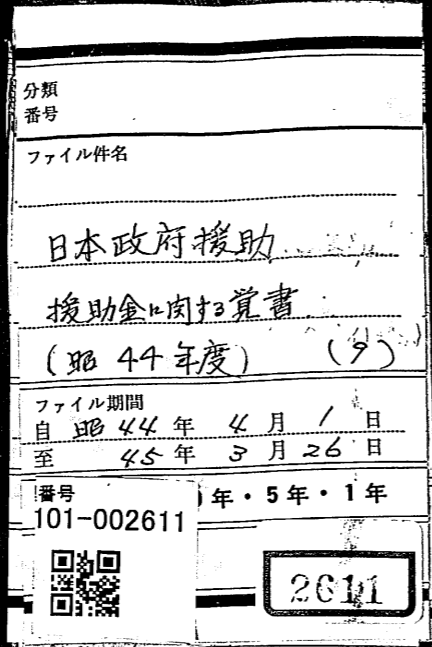 分類
番号
ファイル件名
日本政府援助
援助金に関する覚書
(昭 44年度) (9)
ファイル期間
自 昭 44 年 4 月 1 日
至 45 年 3 月 26 日
番号
101-002611
年・5年・1年
2611